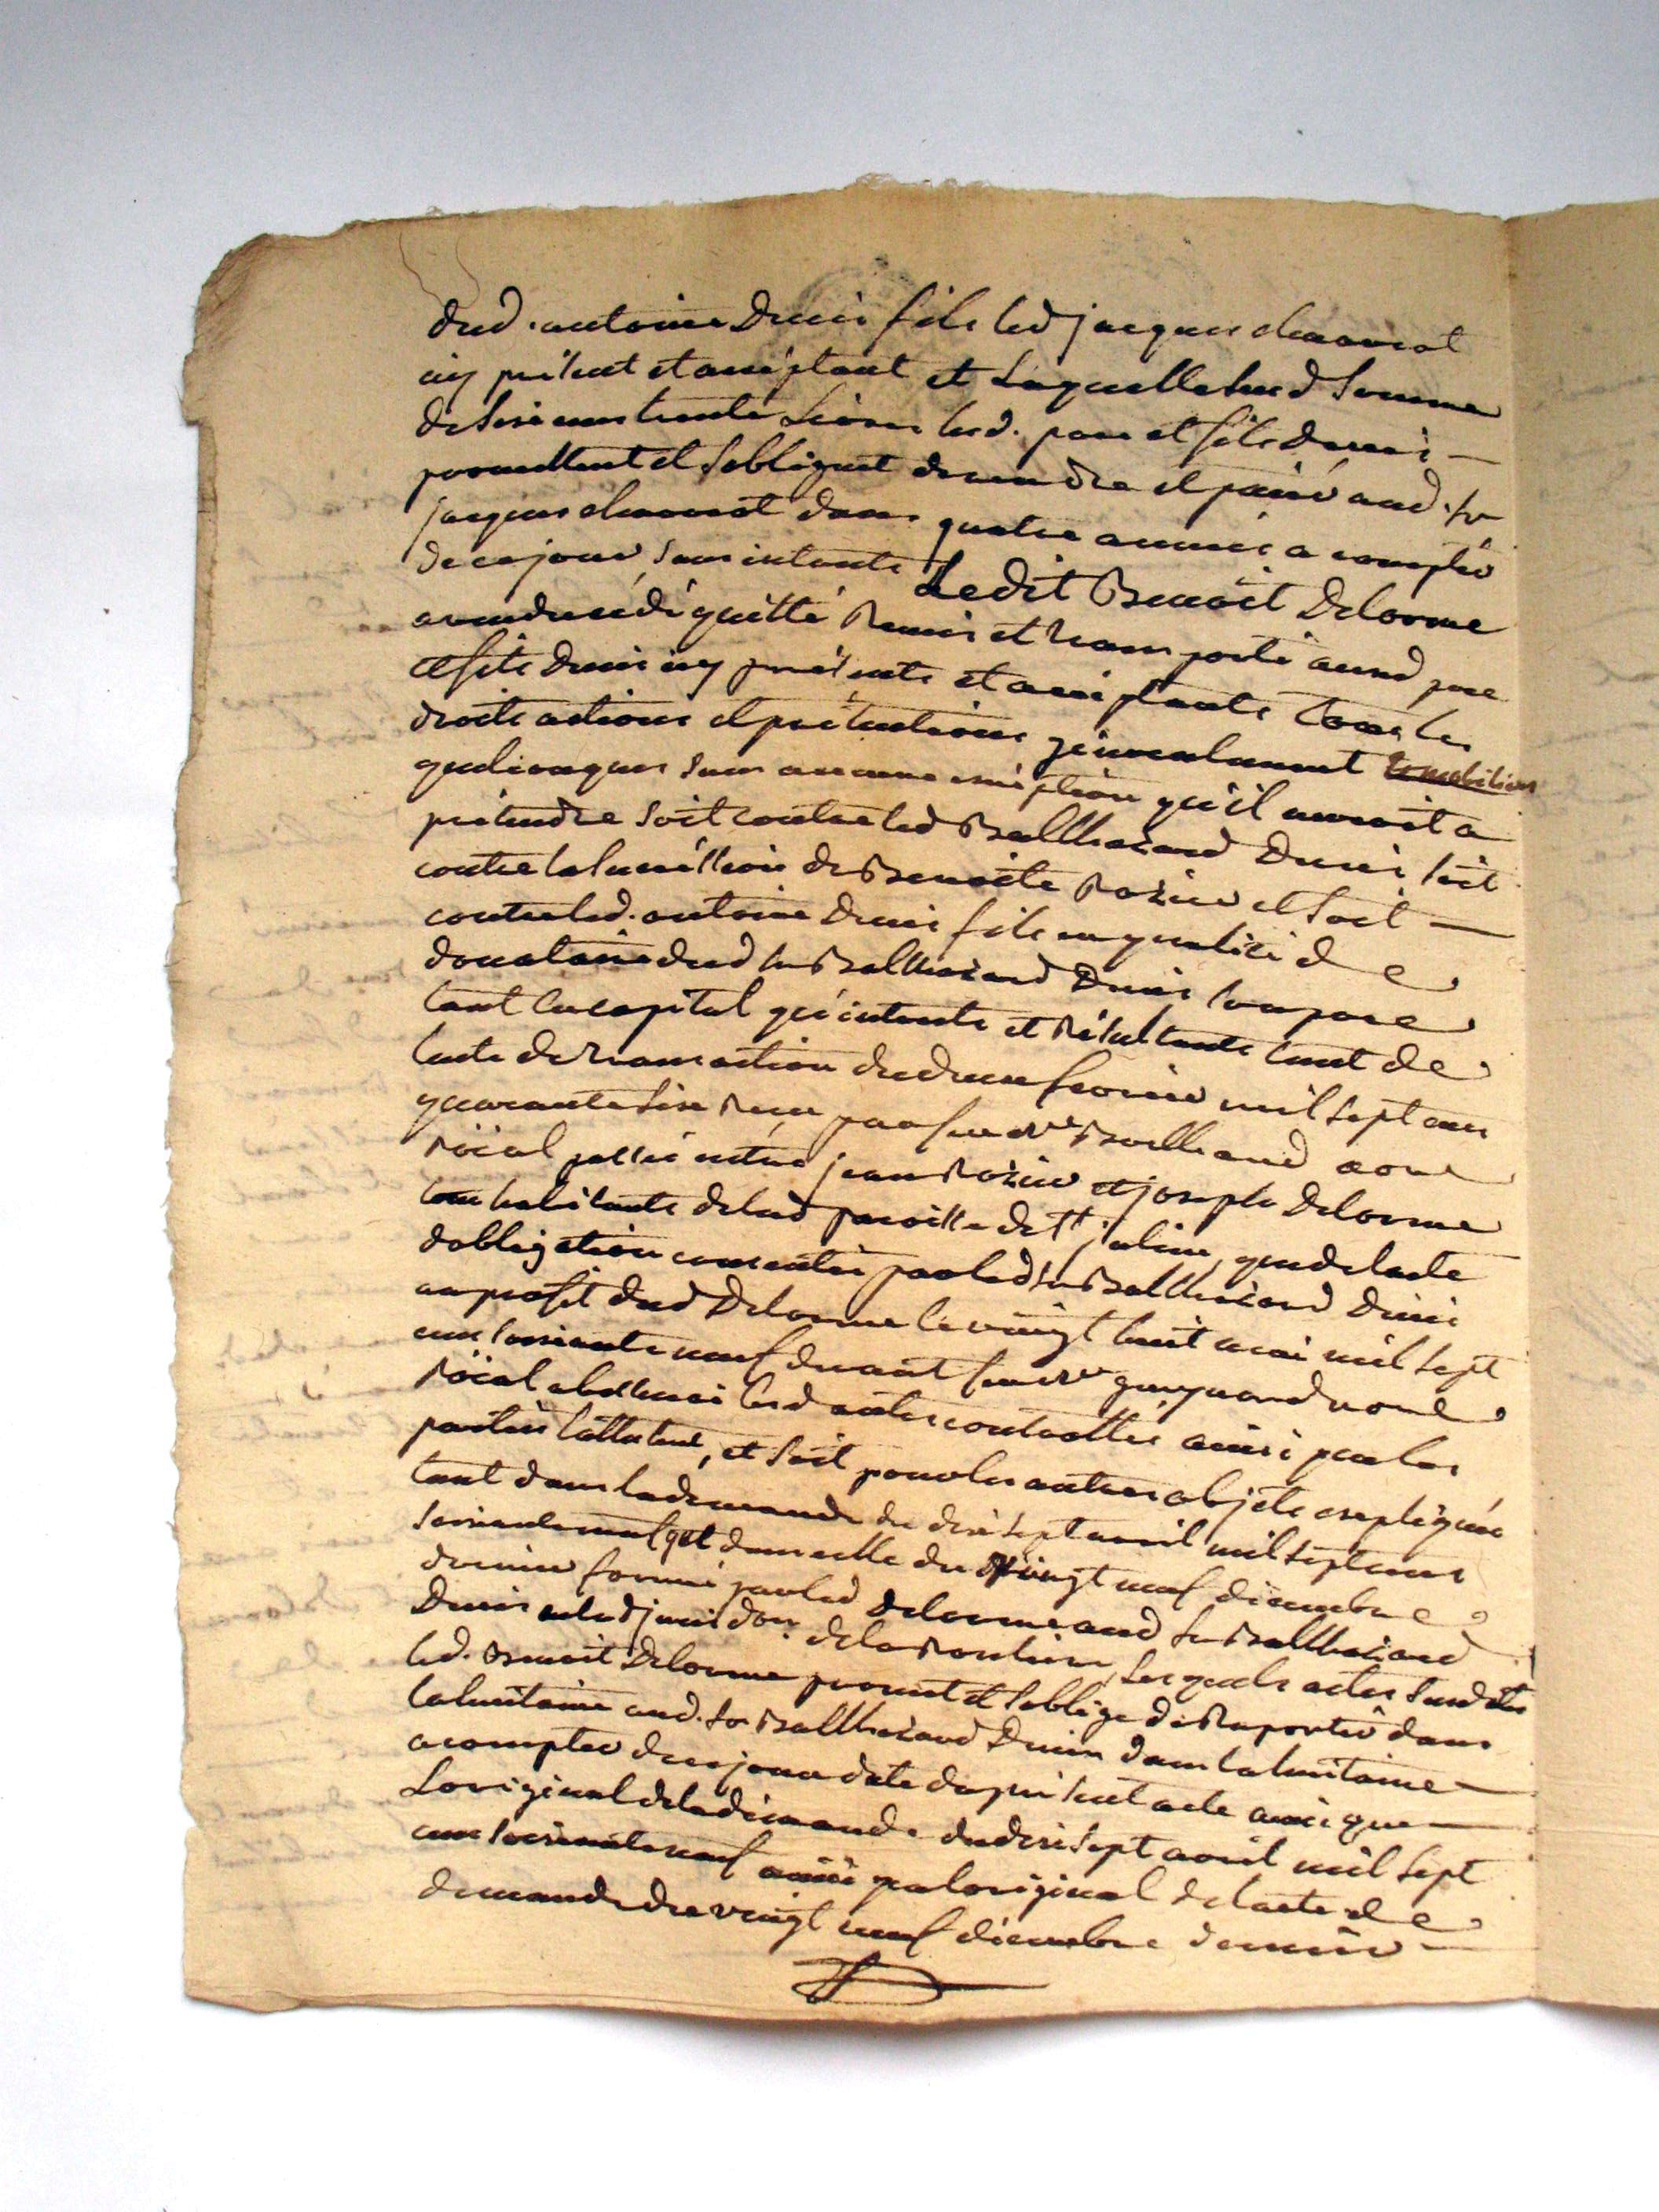 dud. antoine Duni fils led jacques chauvat
icy present et aceptant et Laquelle sud Somme
de Six cens trente Livres lesd. pere et fils Duni
promettent et Sobligent de rendre et païer aud. sr
jacques chauvat dans quatre années a compter
de ce jour sans interets Ledit Benoit Delorme
a vendu cédé quitté Remis et transporté ausd pere
et fils Duni icy présents et aceptants tous les
droits actions et prétentions généralement
quelconques sans aucune exception qu'il auroit a
prétendre soit contre led Balthazard Duni soit
contre la succession de Benoite Rozier et soit
contre led. antoine Duni fils en qualité de
donataire dud sr Balthazard Duni son pere
tant en capital qu'interets et Résultants tant de
lacte de transaction du deux fevrier mil sept cens
quarante six Reçu par feu Me Barthand nore
roïal passé entre jean Rozier et joseph Delorme
tous habitants delad paroisse de St julien, que de lacte
dobligation consentie par led sr Balthazard Duni
au profit dud Delorme le vingt huit mai mil sept
cens soixante neuf devant feu Me guynand nore
roïal lesd actes controllés ainsi que les
parties l'attestent, et soit pour les autres objets expliqués
tant dans la demande du dix sept avril mil sept cens
soixante neuf que dans celle du vingt neuf décembre
dernier formé par led Delorme aud sr Balthazard
Duni en lad jurisdon. de la Lesquels actes susd
led. Benoit Delorme promet et soblige de Raporter dans
la huitaine aud. sr Balthazard Duni dans la huitaine
a compter de ce jour date du présent acte ainsi que
Loriginal de la demande du dix sept avril mil sept
cens soixante neuf ainsi que loriginal de lacte de
demande du vingt neuf décembre dernier